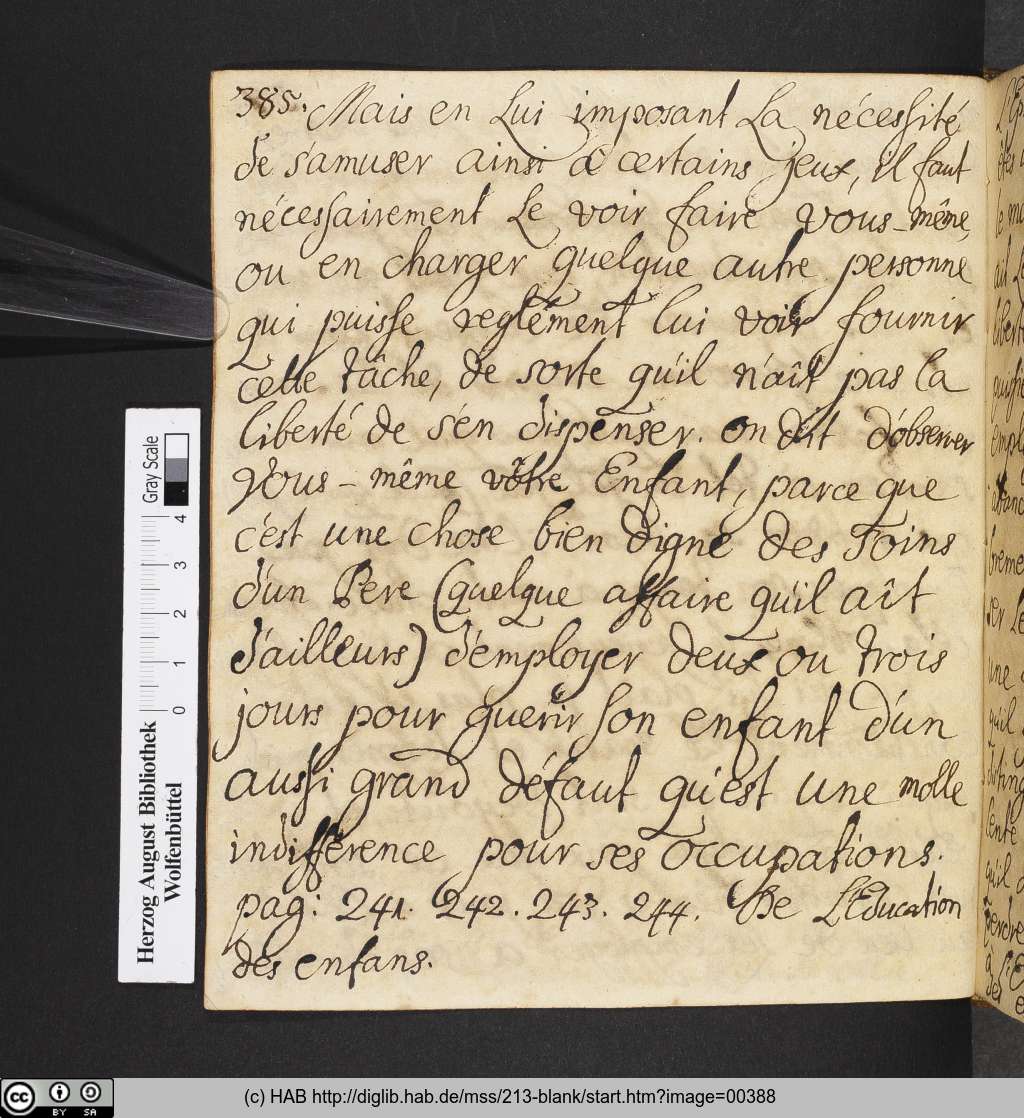 385. Mais en Lui imposant La nécessité
de s'amuser ainsi à certains jeux, il faut
nécessairement Le voir faire vous-même,
ou en charger quelque autre personne
qui puisse reglément lui voir fournir
cette tâche, de sorte qu'il n'aît pas la
liberté de s'en dispenser. on dit d'observer
Vous-même vôtre Enfant, parce que
c'est une chose bien digne des Soins
d'un Pere (quelque affaire qu'il aît
d'ailleurs) d'employer deux ou trois
jours pour guerir son enfant d'un
aussi grand défaut qu'est une molle
indifférence pour ses occupations.
pag: 241. 242. 243. 244. De L'Education
des enfans.
Herzog August Bibliothek
Wolfenbüttel
0 1 2 3 4
Gray Scale
cc BY SA
(c) HAB http://diglib.hab.de/mss/213-blank/start.htm?image=00388